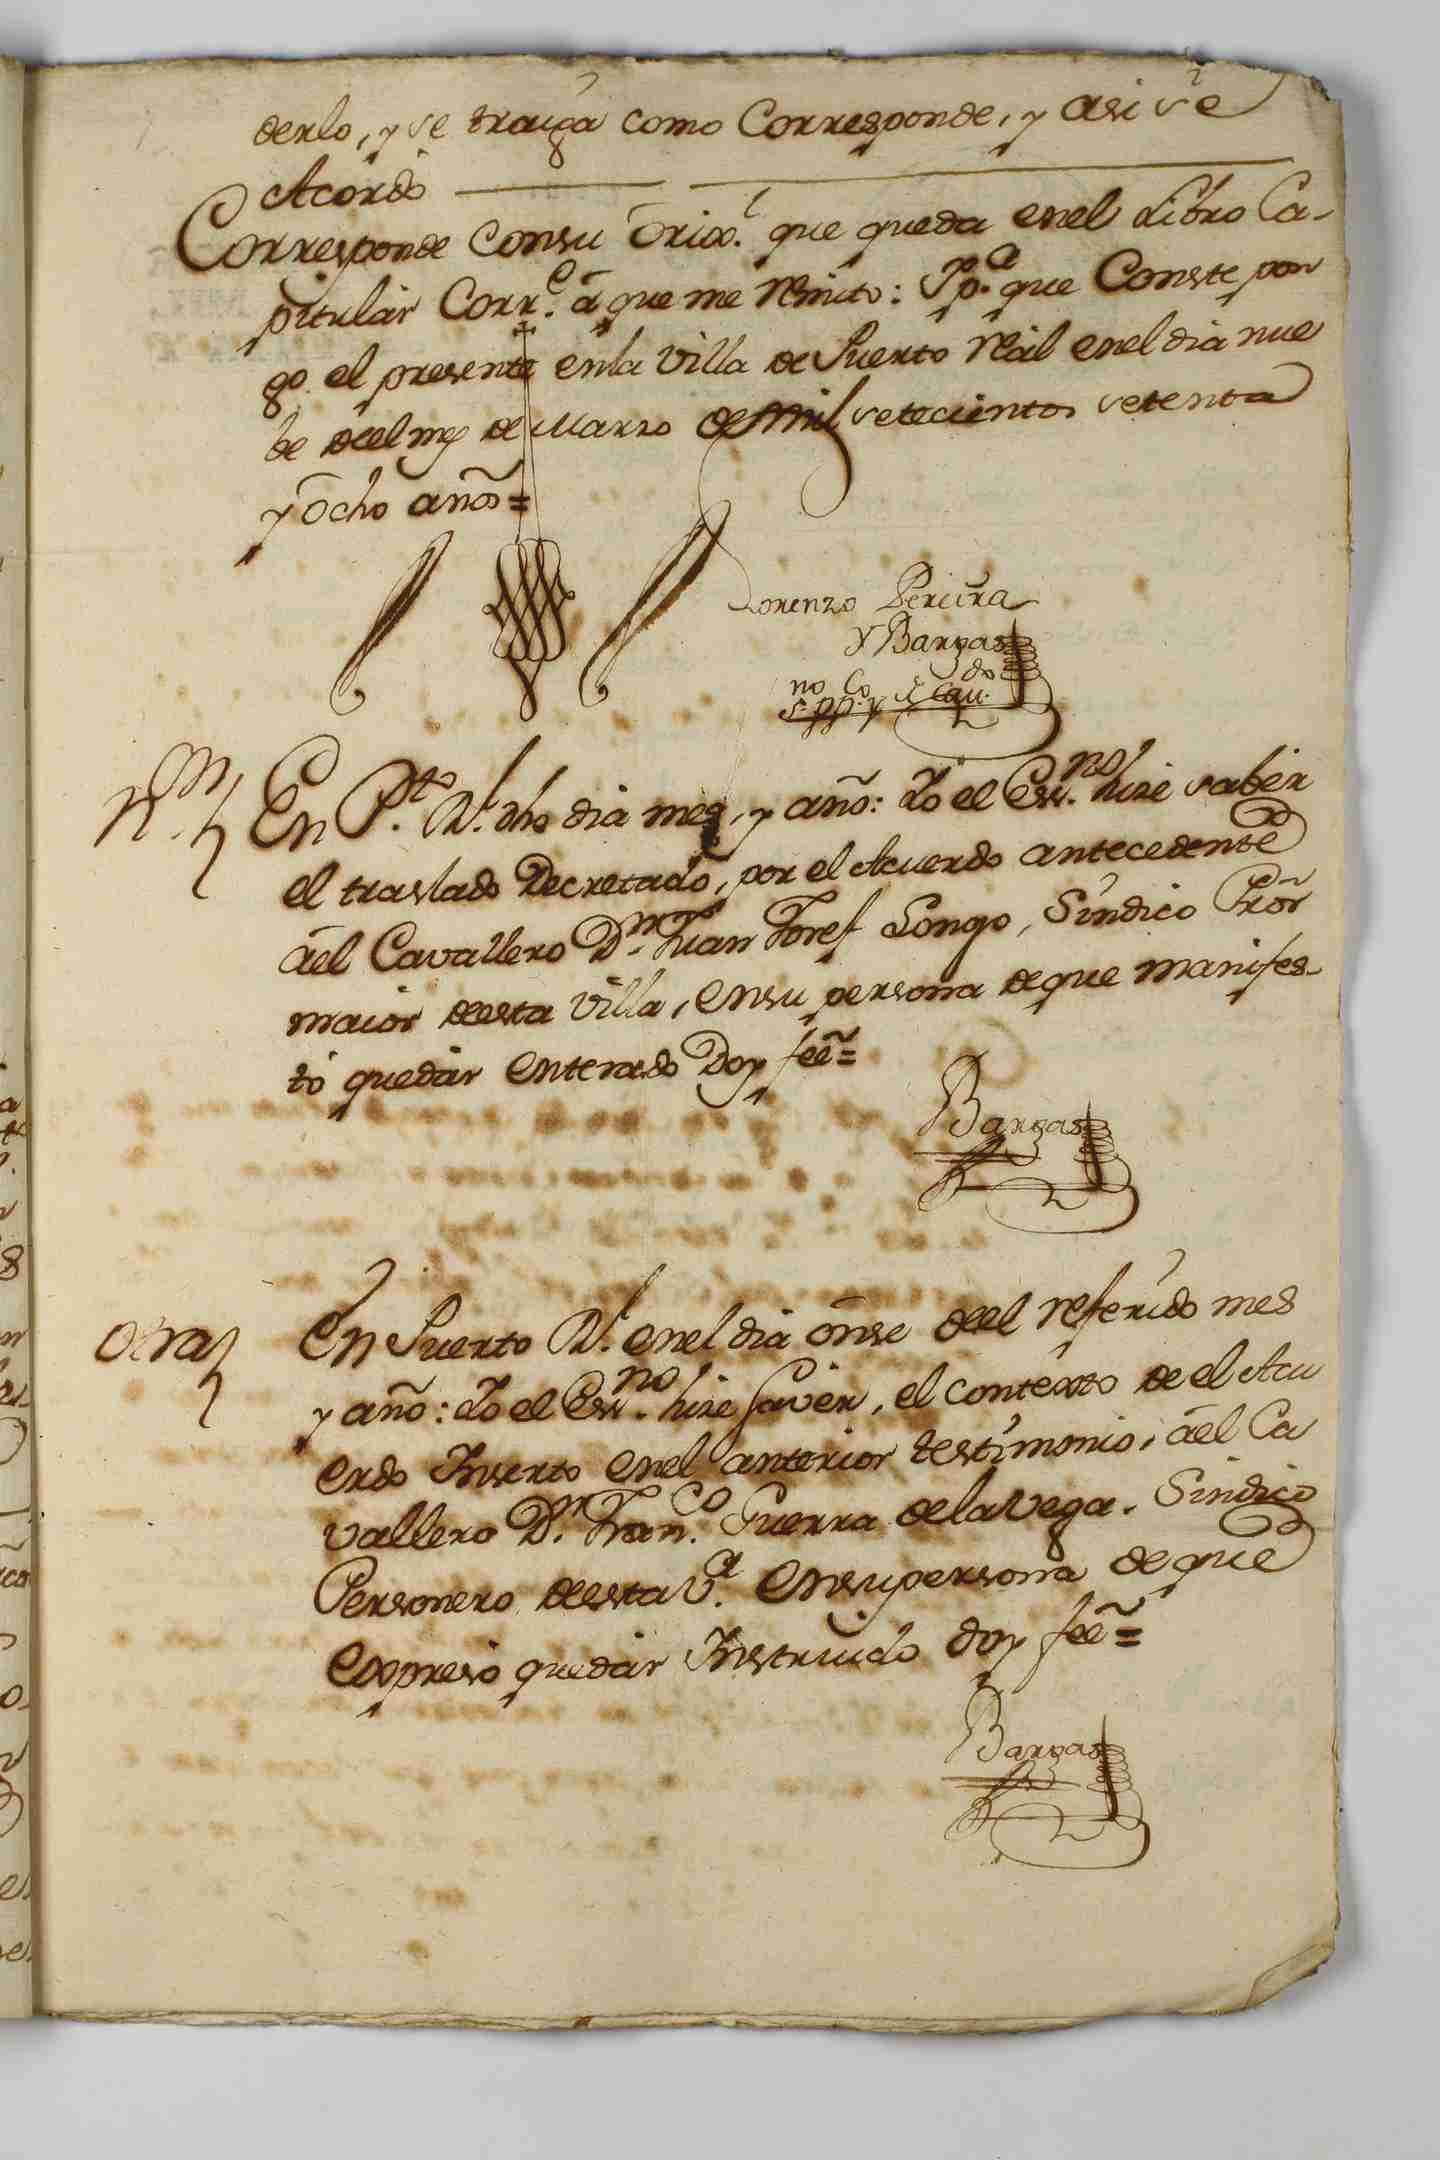 derlo, y se traiga como Corresponde, y asi se
Acordó
Corresponde Consu Orix.l que queda enel Libro Ca-
pitular Corr.e á que me remito: Y p.a que Conste pon
go el presente enla Villa de Puerto Real enel dia nue
be deel mes de Marzo de mil setecientos setenta
y ocho años=
Lorenzo Pereira
Y Bargas
s.no pp.co y de Cav.do
N.on En P.to R.l dho dia mes, y año: Yo el Esn.no hize saber
el traslado Decretado, por el Acuerdo antecedente
ael Cavallero D.n Juan Josef Longo, Sindico Prõr
maior deesta Villa, ensu persona deque manifes-
tó quedar enterado Doy fee=
Bargas
Otra En Puerto R.l enel dia onse deel referido mes
y año: Yo el Esn.no hize saver, el contexto de el Acu
erdo Inserto enel anterior testimonio, ael Ca
vallero D.n Fran.co Guerra delaVega. Sindico
Personero deesta V.a ensupersona deque
expresó quedar Instruido doy fee=
Bargas